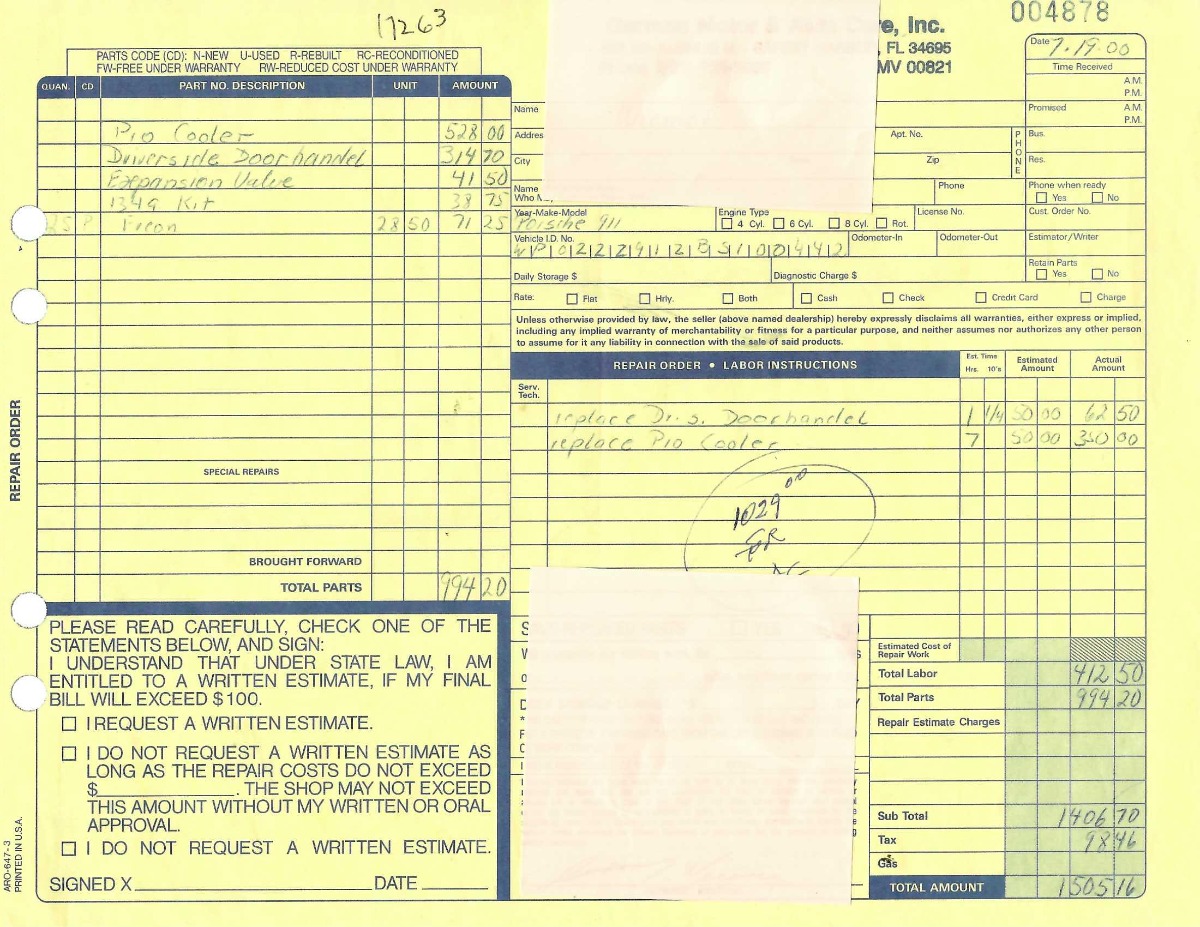 17263
004878
e, Inc.
, FL 34695
MV 00821
Date 7-19-00
Time Received
A.M.
P.M.
Promised A.M.
P.M.
PARTS CODE (CD): N-NEW U-USED R-REBUILT RC-RECONDITIONED
FW-FREE UNDER WARRANTY RW-REDUCED COST UNDER WARRANTY
QUAN. CD PART NO. DESCRIPTION UNIT AMOUNT
Pio Cooler 528 00
Driverside Doorhandel 314 70
Expansion Valve 41 50
134a Kit 38 75
Freon 28 50 71 25
SPECIAL REPAIRS
BROUGHT FORWARD
TOTAL PARTS 994 20
Name
Addres
City
Name
Who
Apt. No.
Zip
Phone
PHONE
Bus.
Res.
Phone when ready
Yes No
Year-Make-Model Porsche 911
Engine Type
4 Cyl. 6 Cyl. 8 Cyl. Rot.
License No.
Cust. Order No.
Vehicle I.D. No.
Odometer-In
Odometer-Out
Estimator/Writer
Retain Parts
Yes No
Daily Storage $ Diagnostic Charge $
Rate: Flat Hrly. Both Cash Check Credit Card Charge
Unless otherwise provided by law, the seller (above named dealership) hereby expressly disclaims all warranties, either express or implied,
including any implied warranty of merchantability or fitness for a particular purpose, and neither assumes nor authorizes any other person
to assume for it any liability in connection with the sale of said products.
REPAIR ORDER • LABOR INSTRUCTIONS
Est. Time
Hrs. 10's
Estimated
Amount
Actual
Amount
Serv.
Tech.
replace Dr. s. Doorhandel 1 1/4 50 00 62 50
replace Pio Cooler 7 50 00 350 00
1029 00
REPAIR ORDER
PLEASE READ CAREFULLY, CHECK ONE OF THE
STATEMENTS BELOW, AND SIGN:
I UNDERSTAND THAT UNDER STATE LAW, I AM
ENTITLED TO A WRITTEN ESTIMATE, IF MY FINAL
BILL WILL EXCEED $100.
I REQUEST A WRITTEN ESTIMATE.
I DO NOT REQUEST A WRITTEN ESTIMATE AS
LONG AS THE REPAIR COSTS DO NOT EXCEED
$ . THE SHOP MAY NOT EXCEED
THIS AMOUNT WITHOUT MY WRITTEN OR ORAL
APPROVAL.
I DO NOT REQUEST A WRITTEN ESTIMATE.
SIGNED X DATE
Estimated Cost of
Repair Work
Total Labor 412 50
Total Parts 994 20
Repair Estimate Charges
Sub Total 1406 70
Tax 98 46
Gas
TOTAL AMOUNT 1505 16
ARO-647-3
PRINTED IN U.S.A.